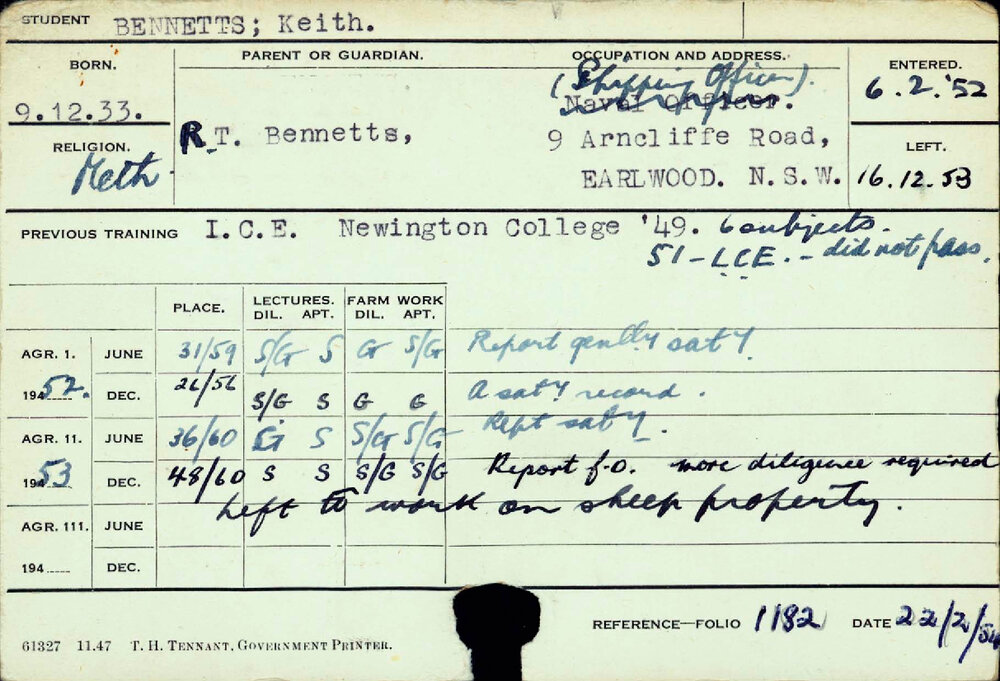 STUDENT BENNETTS; Keith.
BORN. PARENT OR GUARDIAN. OCCUPATION AND ADDRESS. ENTERED.
(Shipping Officer).
9.12.33. Naval Officer. 6.2.'52
R.T. Bennetts, 9 Arncliffe Road,
RELIGION. LEFT.
Meth. EARLWOOD. N.S.W. 16.12.53
PREVIOUS TRAINING I.C.E. Newington College '49. 6 subjects.
51 - L.C.E. - did not pass.
PLACE. LECTURES. FARM WORK
DIL. APT. DIL. APT.
AGR. 1. JUNE 31/59 S/G S G S/G Report gen'lly sat'y.
1952. DEC. 26/56 S/G S G G A sat'y record.
AGR. 11. JUNE 36/60 S S/G S/G Rept sat'y.
1953 DEC. 48/60 S S S/G S/G Report f.o. more diligence required
Left to work on sheep property.
AGR. 111. JUNE
194 DEC.
REFERENCE—FOLIO 1182 DATE 22/2/54
61327 11.47 T. H. TENNANT, GOVERNMENT PRINTER.